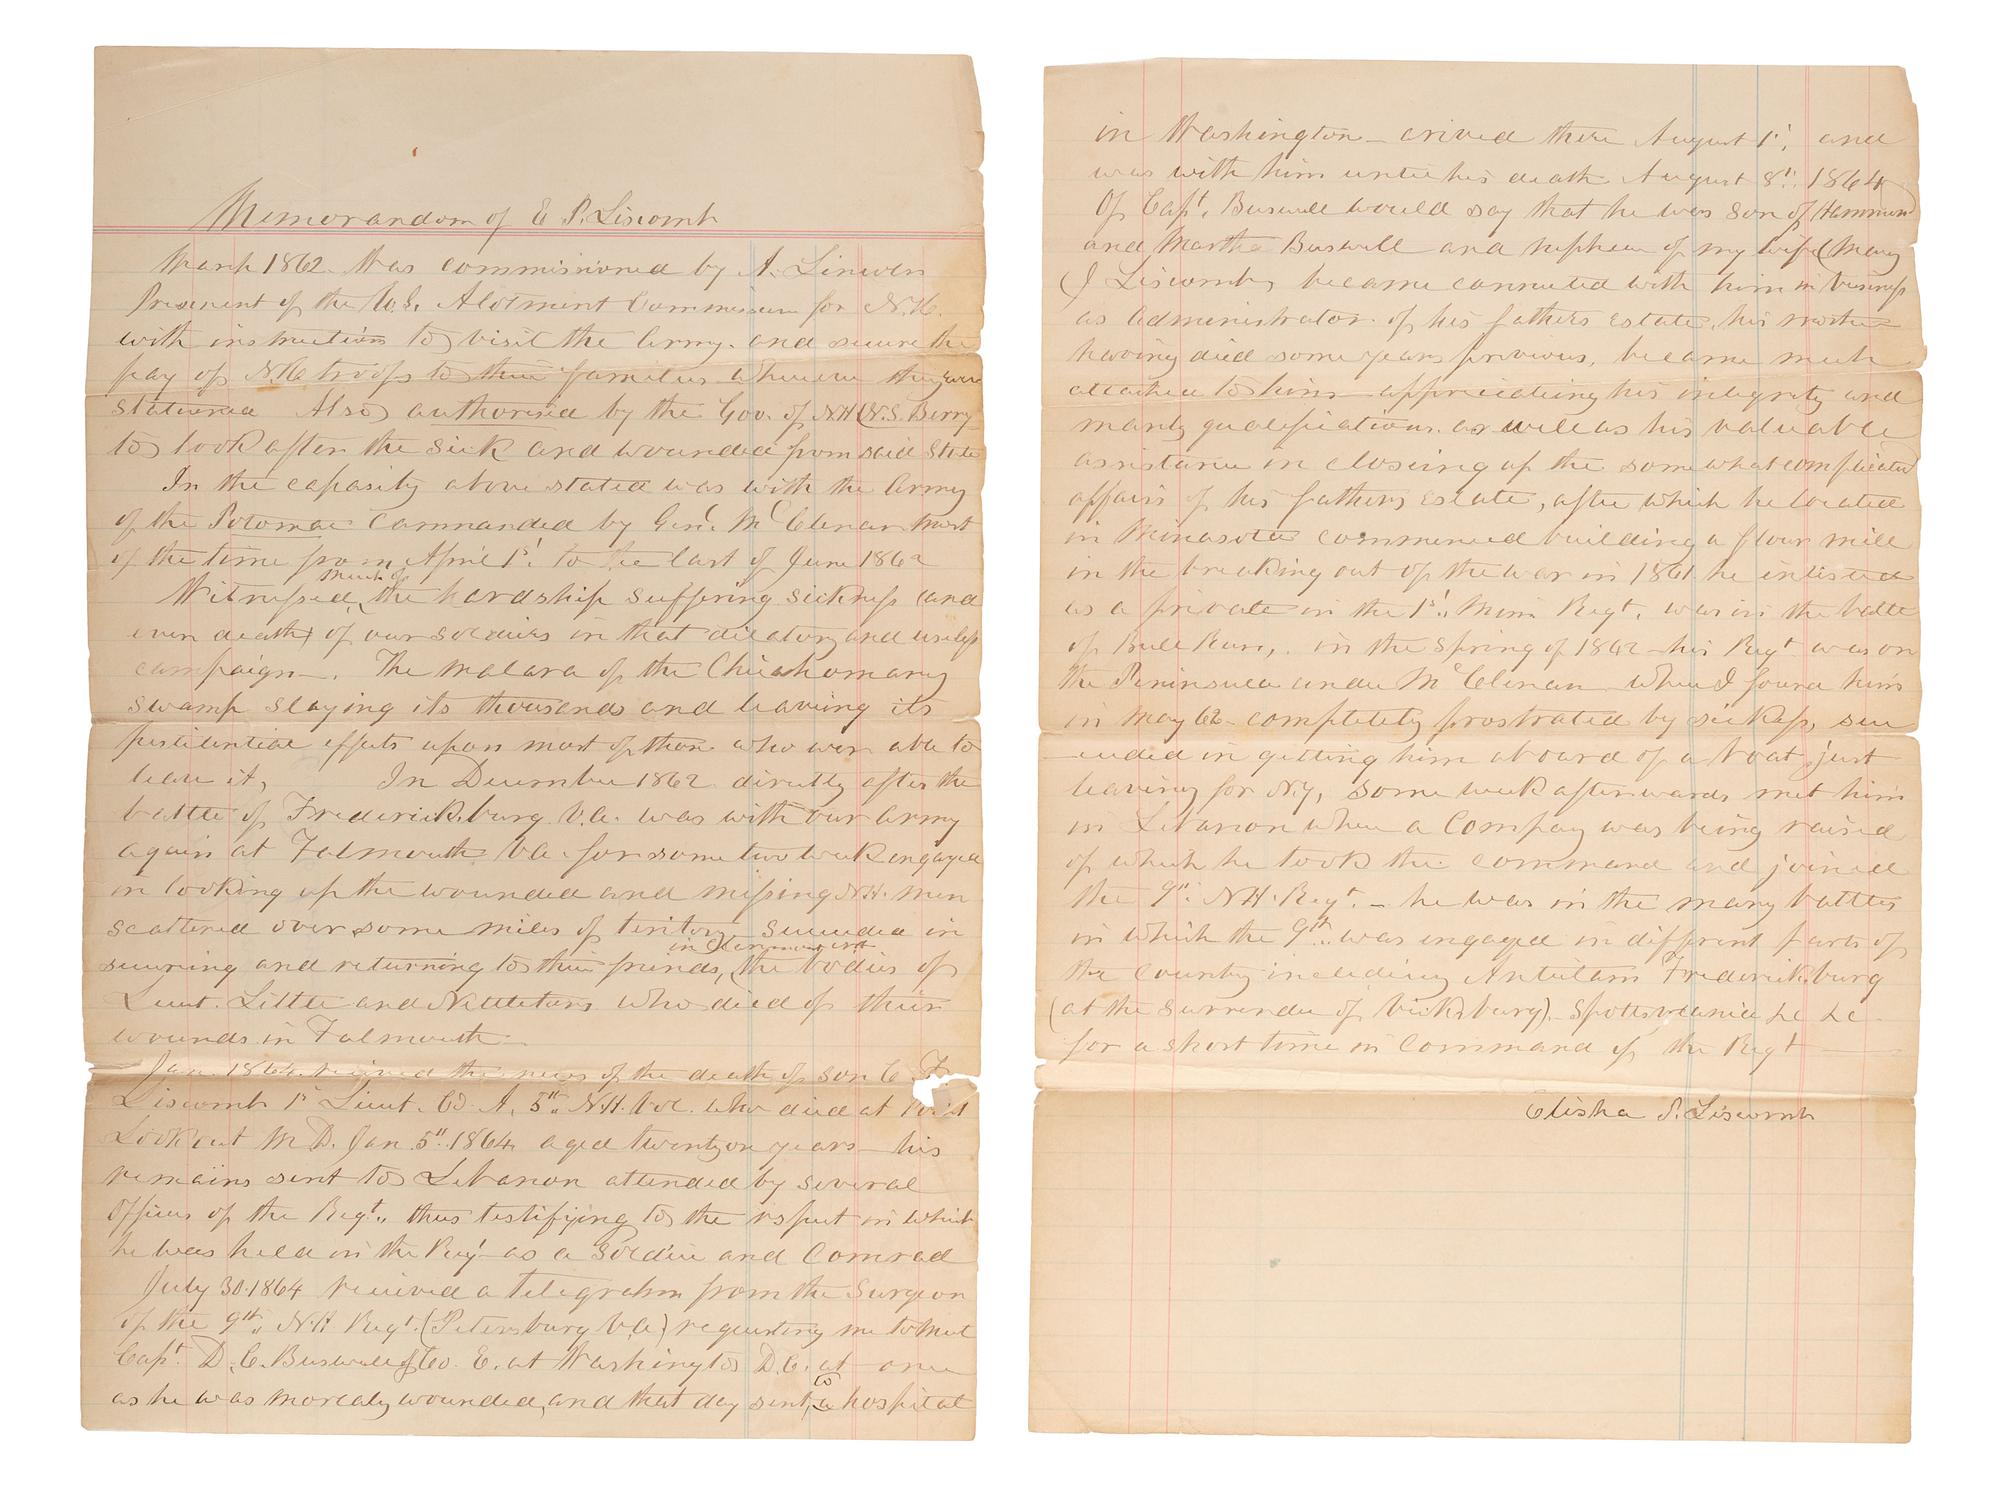 Memorandom of E P. Liscomb
March 1862. Was commissioned by A. Lincoln
President of the U.S. Alotment Commission for N.H.
with instruction to visit the Army. and secure the
pay of N.H. troops to their families wherever they were
stationed Also authorised by the Gov. of NH (N.S. Berry
to look after the sick and wounded from said State
In the capasity above stated was with the Army
of the Potomac Commanded by Genl. McClenan most
of the time from April 1st to the last of June 1862
Witnessed, much of the hardship suffering sickness and
even death of our soldiers in that dilatory and useless
campaign—. The malara of the Chicahomany
swamp slaying its thousands and leaving its
pestilential effects upon most of them who wer able to
leave it, In December 1862 directly after the
battle of Frederickburg V.a. was with our Army
again at Falmouth Va. for some two week engaged
in looking up the wounded and missing N.H. men
scattered over some miles of teritory succeded in
securing and returning to their friends, in the bodies of
Lieut. Little and Nettleton who died of their
wounds in Falmouth —
Jan. 1864. received the news of the death of son C. F.
Liscomb 1st Lieut. Co A. 5th N.H. Vol. who died at Point
Lookout M D. Jan 5th 1864 aged twentyone years — his
remains sent to Lebanon attended by several
Officers of the Regt., thus testifying to the respect in which
he was held in the Regt as a Soldier and Comrad
July 30. 1864 received a telegrahm from the Surgeon
of the 9th N.H Regt. (Petersburg V.a) requesting me to meet
Capt. D. C. Buswell of Co. E. at Washington D.C. at once
as he was mortaly wounded, and that day sent, to a hospital
in Washington — arived there August 1st, and
was with him untill his death August 8th 1864
Of Capt. Buswell would say that he was son of Hammond
and Martha Buswell and nephew of my wife (Mary
J Liscomb, became connected with him in business
as administrator of his fathers estate, his mother
having died some years previous, became much
attached to him — appreciating his integrity and
manly qualifications. as well as his valuable
assistance in closeing up the somewhat complicated
affairs of his fathers estate, after which he located
in Minasota commenced building a flour mill
in the breaking out of the war in 1861 he enlisted
as a private in the 1st Minn Regt. was in the battle
of Bull Run, . in the Spring of 1862 — his Regt was on
the Peninsula under McClenan — when I found him
in May 62 — completely prostrated by sickness, suc
ceeded in getting him aboard of a boat just
leaving for N.y, some week afterwards met him
in Lebanon when a Company was being raised
of which he took the command and joined
the 9th N.H. Regt. — he was in the many battles
in which the 9th was engaged in different parts of
the Country including Antietam Frederickburg
(at the surrender of Vicksburg). Spottsvlania &c &c —
for a short time in Command of the Regt —
Elisha P. Liscomb